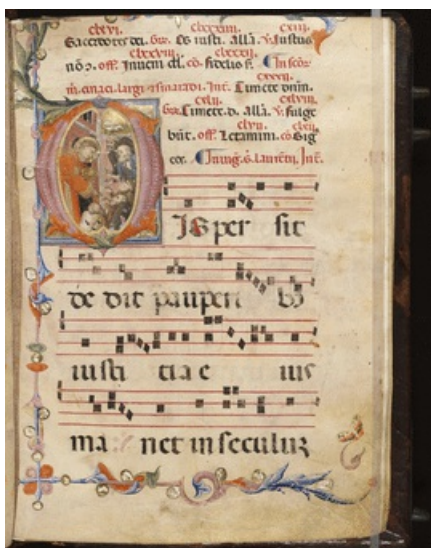 clxvi. clxxxiii. cxiii.
Sacerdotes dei. Gre. Os iusti. alla. v. Iustus
clxxviii. clxxxii.
nō 2. off. Inueni cō. fidelis s. In scōr
cxxxii.
m. ciriaci. largi et smaradi. Int. Timete dnm.
cxlii. cxlviii.
Gre. Timete. d. alla. v. fulge
clvii. clxii.
būt. off. Letamini. co. Sig
eos. In uig. s. laurētij. Int.
Is per sit
de dit pauperi b3
iusti cia e ius
ma net in seculuz